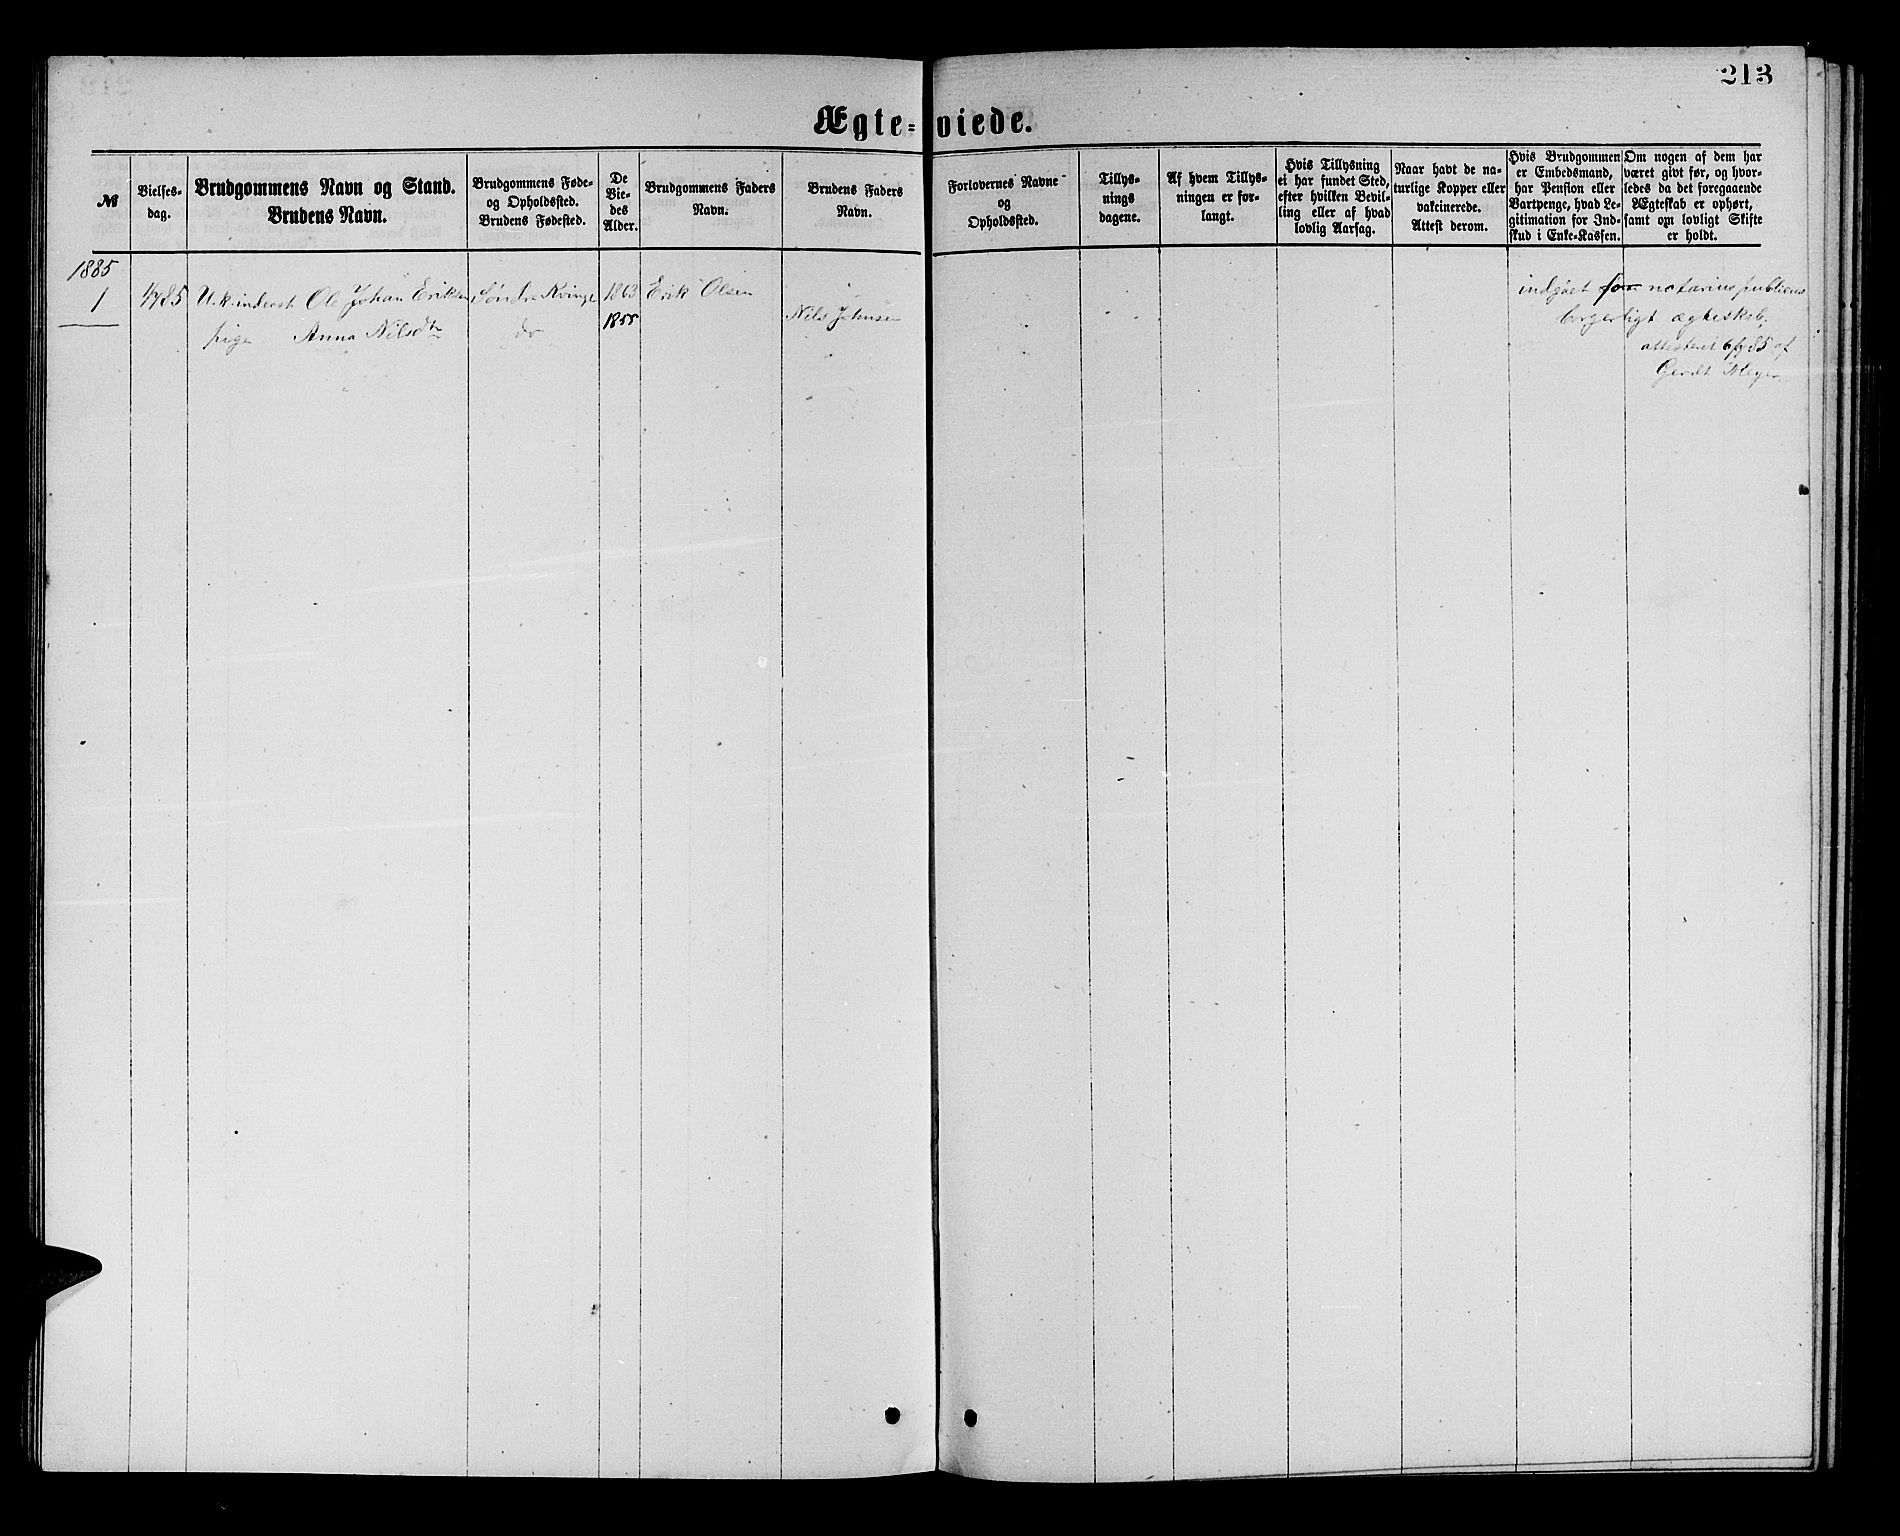 213
Ægte-viede.
№
Vielses-
dag.
Brudgommens Navn og Stand.
Brudens Navn.
Brudgommens Føde-
og Opholdsted.
Brudens Fødested.
De
Vie-
des
Alder.
Brudgommens Faders
Navn.
Brudens Faders
Navn.
Forlovernes Navne
og
Opholdsted.
Tillys-
nings
dagene.
Af hvem Tillys-
ningen er for-
langt.
Hvis Tillysning
ei har fundet Sted,
efter hvilken Bevil-
ling eller af hvad
lovlig Aarsag.
Naar havt de na-
turlige Kopper eller
vakcinerede.
Attest derom.
Hvis Brudgommen
er Embedsmand,
har Pension eller
Vartpenge, hvad Le-
gitimation for Ind-
skud i Enke-Kassen.
Om nogen af dem har
været givt før, og hvor-
ledes da det foregaaende
Ægteskab er ophørt,
samt om lovligt Skifte
er holdt.
1885
1
Ole Johan Eriksen
Søndre Kvinge
1863
Erik Olsen
indgået for notarius publicus
pige Anna Nilsdtr
do
1855
Nils Johnsen
borgerligt ægteskab,
attesteret af
Gerdt Meyer